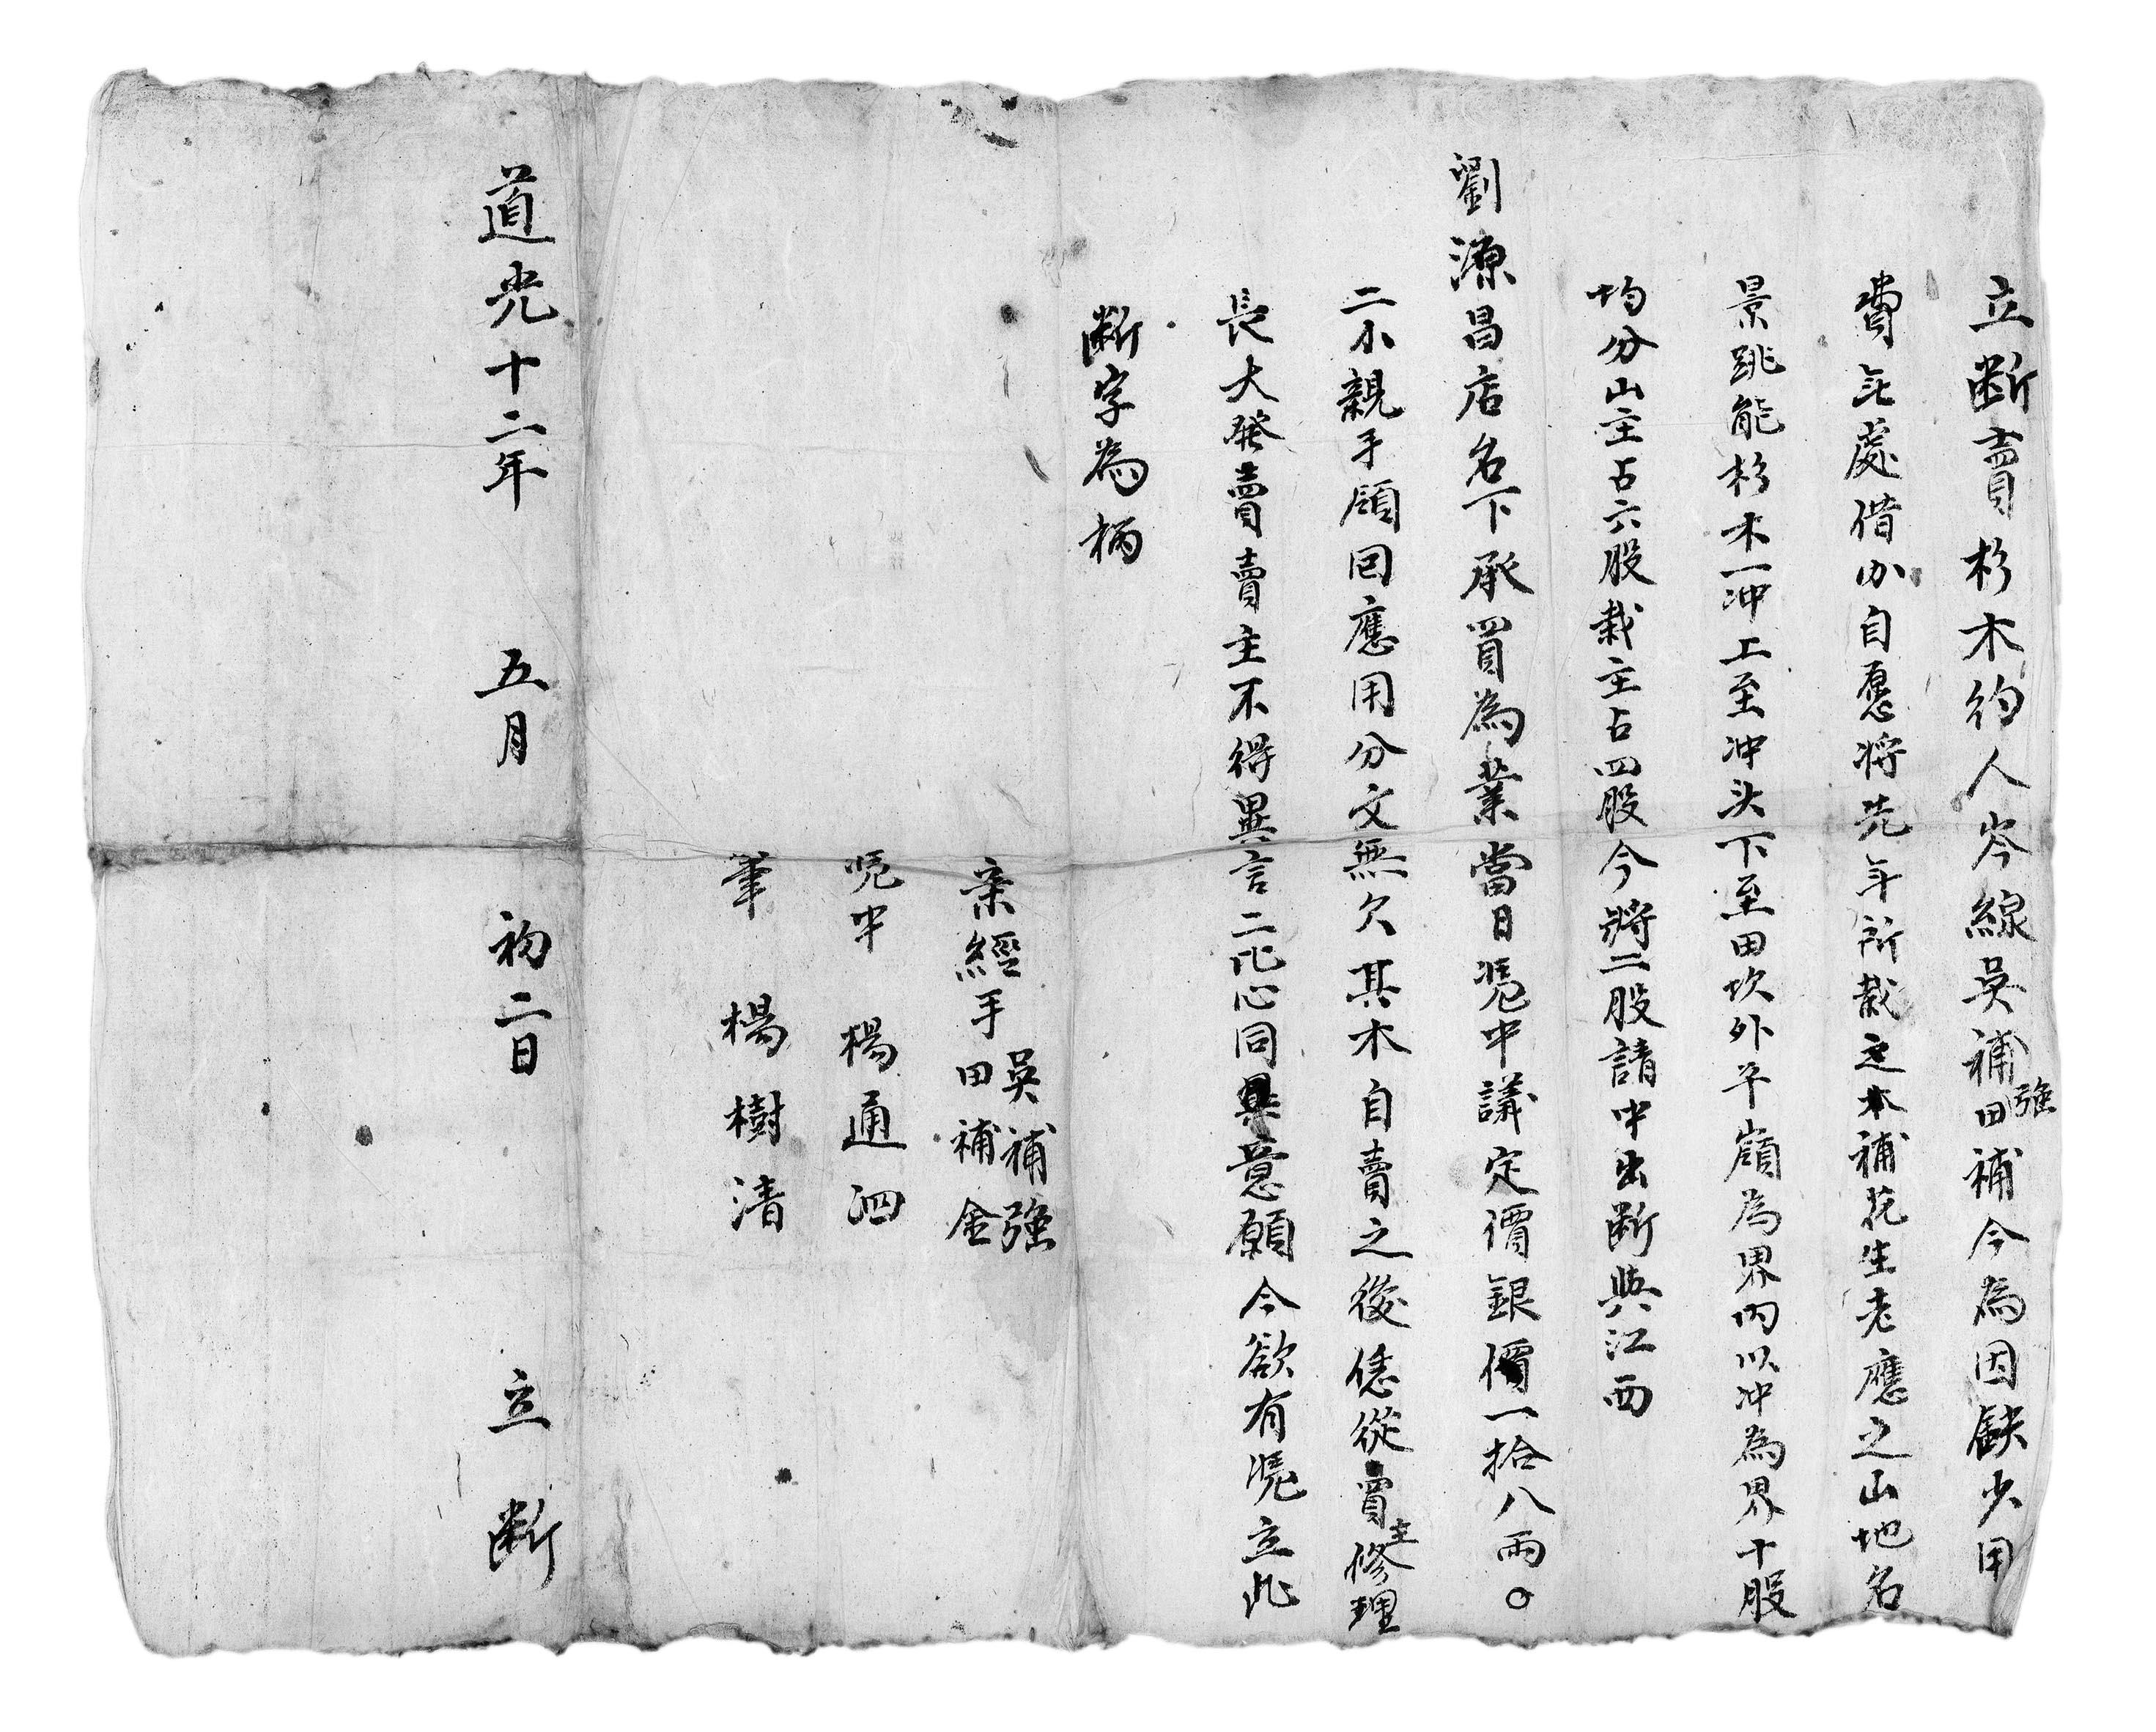 立断賣杉木約人岑線吳補強田補今為因缺少用
費無處借办自愿将先年所栽之木補花生老應之山地名
景跳能杉木一冲上至冲头下至田坎外平嶺為界内以冲為界十股
均分山主占六股栽主占四股今將二股請中出断與江西
劉源昌店名下承買為業當日凴中議定價銀價一拾八兩〇
二小親手領回應用分文無欠其木自賣之後凭從買主修理
長大發賣賣主不得異言二比心同意願今欲有凴立此
断字為柄
亲經手吳補強田補金
凴中 楊通泗
筆 楊樹清
道光十二年 五月 初二日 立 断